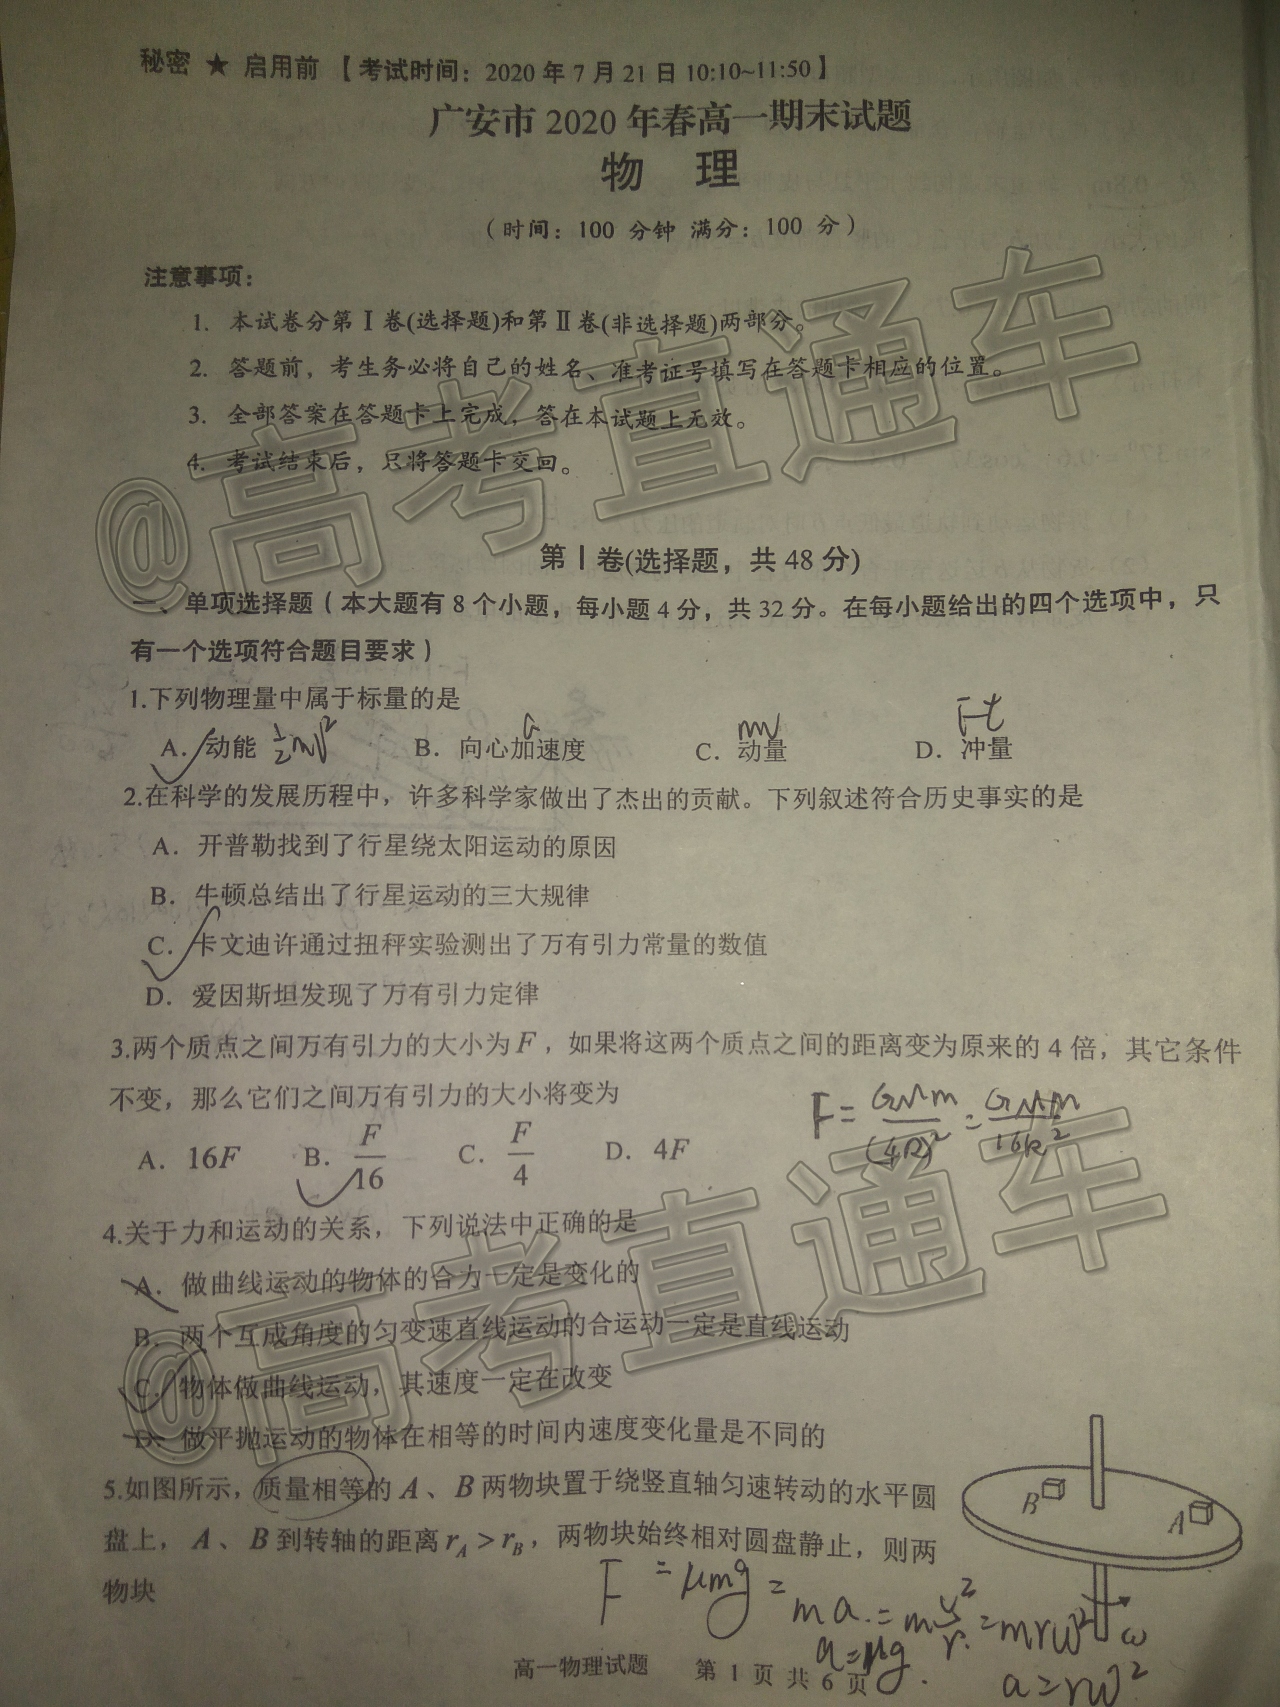 秘密 ★ 启用前 【考试时间：2020 年 7 月 21 日 10:10~11:50】
广安市 2020 年春高一期末试题
物 理
（时间：100 分钟 满分：100 分）
注意事项：
1. 本试卷分第Ⅰ卷(选择题)和第Ⅱ卷(非选择题)两部分。
2. 答题前，考生务必将自己的姓名、准考证号填写在答题卡相应的位置。
3. 全部答案在答题卡上完成，答在本试题上无效。
4. 考试结束后，只将答题卡交回。
@高考直通车
第Ⅰ卷(选择题，共 48 分)
一、单项选择题（本大题有 8 个小题，每小题 4 分，共 32 分。在每小题给出的四个选项中，只
有一个选项符合题目要求）
1.下列物理量中属于标量的是
A．动能 ½mv² B．向心加速度 a C．动量 mv D．冲量 Ft
2.在科学的发展历程中，许多科学家做出了杰出的贡献。下列叙述符合历史事实的是
A．开普勒找到了行星绕太阳运动的原因
B．牛顿总结出了行星运动的三大规律
C．卡文迪许通过扭秤实验测出了万有引力常量的数值
D．爱因斯坦发现了万有引力定律
3.两个质点之间万有引力的大小为 F，如果将这两个质点之间的距离变为原来的 4 倍，其它条件
不变，那么它们之间万有引力的大小将变为
F = GMm/(4R)² = GMm/16R²
A．16F B．F/16 C．F/4 D．4F
4.关于力和运动的关系，下列说法中正确的是
A．做曲线运动的物体的合力一定是变化的
B．两个互成角度的匀变速直线运动的合运动一定是直线运动
C．物体做曲线运动，其速度一定在改变
D．做平抛运动的物体在相等的时间内速度变化量是不同的
@高考直通车
5.如图所示，质量相等的 A、B 两物块置于绕竖直轴匀速转动的水平圆
盘上，A、B 到转轴的距离 r_A > r_B，两物块始终相对圆盘静止，则两
物块
B A
ω
F = μmg = ma = mv²/r = mrω²
a = μg
a = rω²
高一物理试题 第 1 页 共 6 页